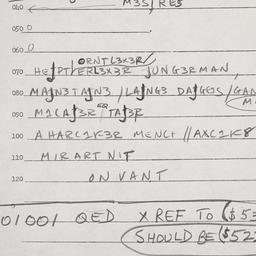 040 M3S RES
050
060
ORNTL3X3R
070 HE PT ERL3X3R JUNG3RMAN,
080 MAJN3TAJN3 /LAJNG3 DAJGEJS /GAN
090 M1CAJ3R TAJ3R
100 A HARC1K3R MENCH //AXC1K8
110 MIR ART NIT
120 ON VANT
01001 QED X REF TO ($53
SHOULD BE ($52